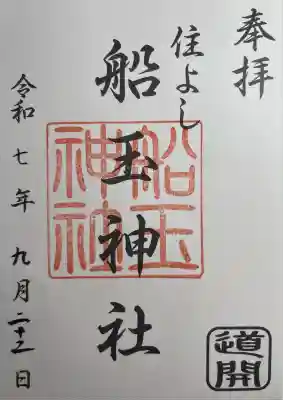 奉拝
住よし
船玉神社
船玉
神社
令和七年九月二十三日
道開